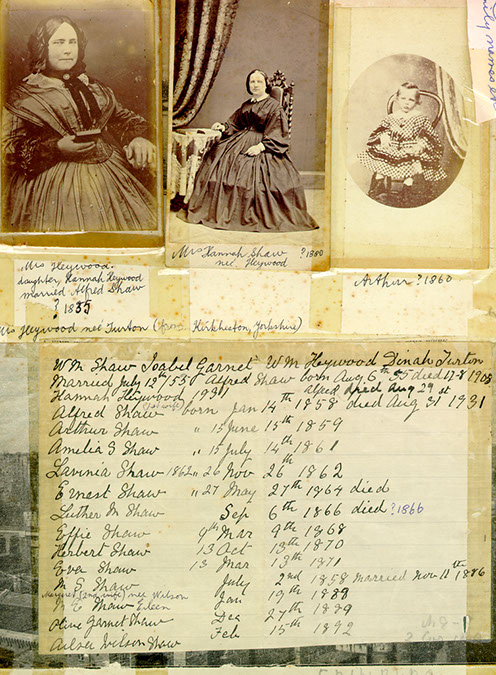 ily names et
Mrs Heywood.
daughter Hannah Heywood
married Alfred Shaw
? 1835
Mrs Hannah Shaw ? 1880
nee. Heywood
Arthur ? 1860
Mrs Heywood neé Turton (from Kirkheaton, Yorkshire)
Wm Shaw Isabel Garnet Wm Heywood Dinah Turton
Married July 12th 1530 Alfred Shaw born Aug 6th 35 died 17-8 1908
Hannah Heywood 1931 Alfred died Aug 29
Alfred Shaw (1st wife) born Jan 14th 1858 died Aug 31st 1931
Arthur Shaw " 15 June 15th 1859
Amelia S Shaw " 15 July 14th 1861
Lavinia Shaw 1862 " 26 Nov 26th 1862
Ernest Shaw " 27 May 27th 1864 died
Luther M Shaw Sep 6th 1866 died ? 1866
Effie Shaw 9th Mar 9th 1868
Herbert Shaw 13 Oct 13th 1870
Eva Shaw 13 Mar 13th 1871
Shaw July 2nd 1858 Married Nov 11th 1886
Margaret (2nd wife) nee Wilson
Shaw Eileen Jan 19th 1888
Olive Garnet Shaw Dec 27th 1889
Ailsa Wilson Shaw Feb 15th 1892